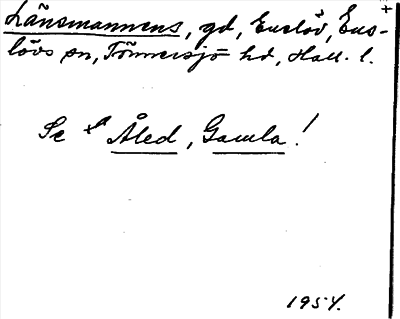 Länsmannens, gd, Enslöv, Ens-
lövs sn, Tönnersjö hd, Hall. l.
Se Åled, Gamla!
1954.